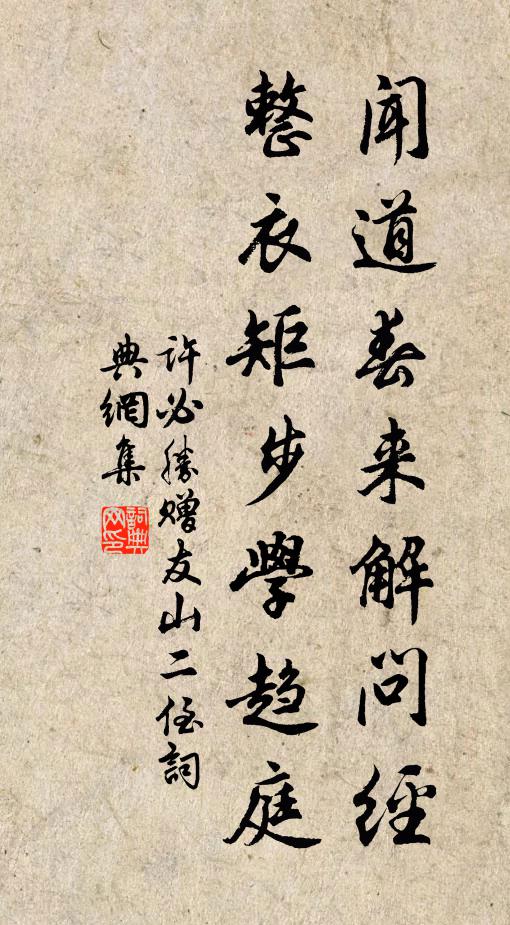 闻道春来解问经
整衣矩步学趋庭
许必胜赠友山二侄词
典網集
詞典网印